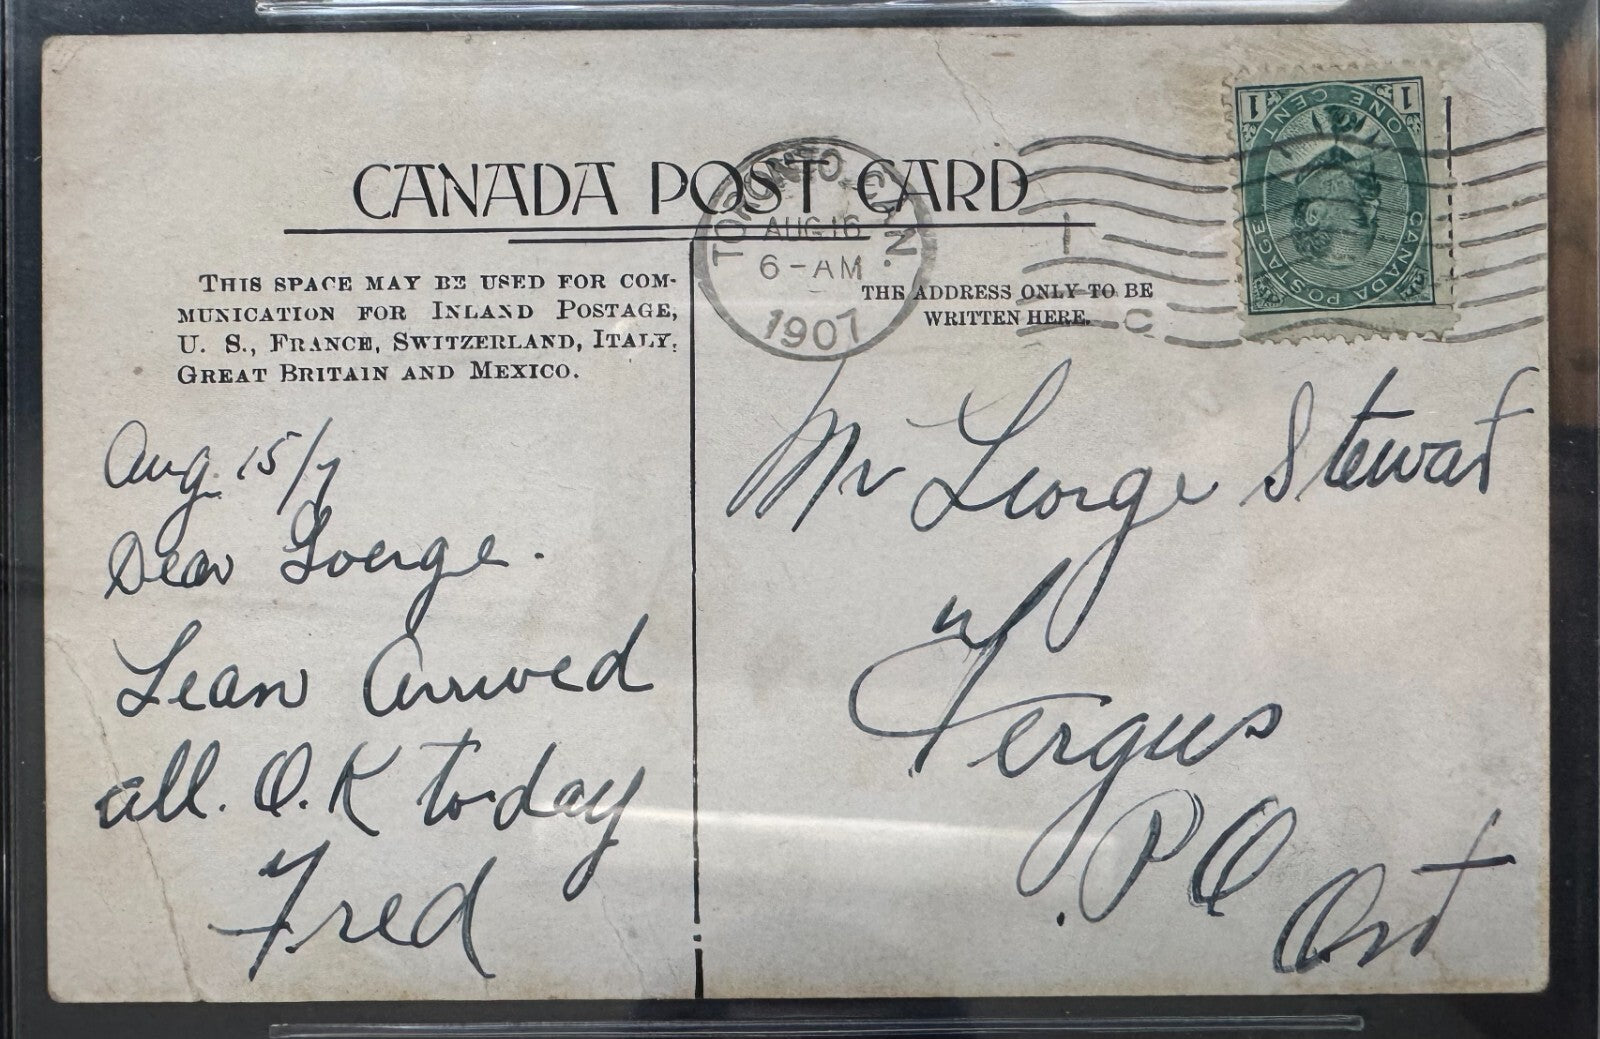 CANADA POST CARD
TORONTO, CAN.
AUG 16
6-AM
1907
1
C
1 1
ONE CENT
CANADA POSTAGE
THIS SPACE MAY BE USED FOR COM-
MUNICATION FOR INLAND POSTAGE,
U. S., FRANCE, SWITZERLAND, ITALY,
GREAT BRITAIN AND MEXICO.
THE ADDRESS ONLY TO BE
WRITTEN HERE.
Aug. 15/7
Dear Goerge.
Lean Arrived
all. O.K to-day
Fred
Mr George Stewart
Fergus
P.O
Ont